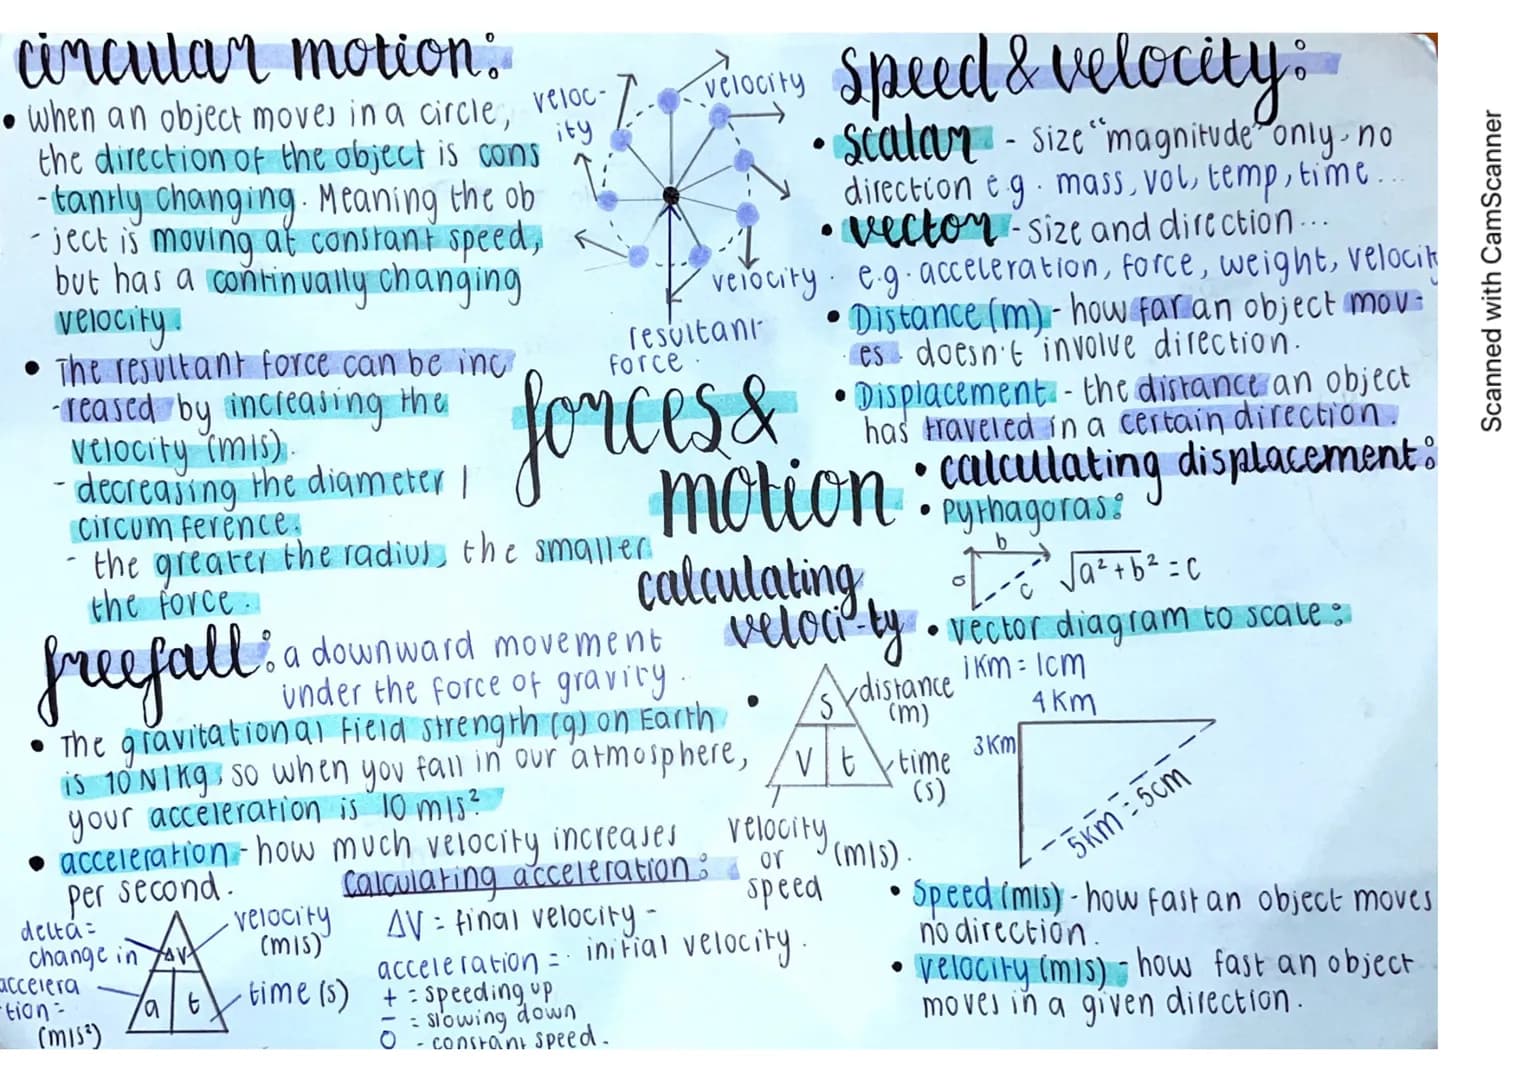 circular motion:
• when an object moves in a circle,
the direction of the object is cons
-tantly changing. Meaning the ob
-ject is moving at constant speed,
but has a continually changing
velocity.
• The resultant force can be inc
-reased by increasing the
velocity (m/s).
- decreasing the diameter /
circumference.
- the greater the radius, the smaller
the force.
veloc-
ity
velocity
velocity
resultant
force.
speed & velocity:
• scalar - size "magnitude" only - no
direction e.g. mass, vol, temp, time...
• vector - size and direction...
e.g. acceleration, force, weight, velocity
• Distance (m) - how far an object mov-
es. doesn't involve direction.
• Displacement - the distance an object
has traveled in a certain direction.
forces &
motion
• calculating displacement:
• pythagoras:
b
a
c
√a²+b² = c
• vector diagram to scale:
1km = 1cm
4km
3km
5km = 5cm
calculating
veloci-ty
•
S
V t
distance
(m)
time
(s)
velocity
or
speed
(m/s).
• Speed (m/s) - how fast an object moves
no direction.
• velocity (m/s) - how fast an object
moves in a given direction.
freefall: a downward movement
under the force of gravity.
• The gravitational field strength (g) on Earth
is 10 N/kg, so when you fall in our atmosphere,
your acceleration is 10 m/s²
• acceleration - how much velocity increases
per second.
calculating acceleration:
delta =
change in
accelera
-tion =
(m/s²)
ΔV
a t
velocity
(m/s)
time (s)
ΔV = final velocity -
initial velocity.
acceleration =
+ = speeding up
- = slowing down
0 - constant speed.
Scanned with CamScanner